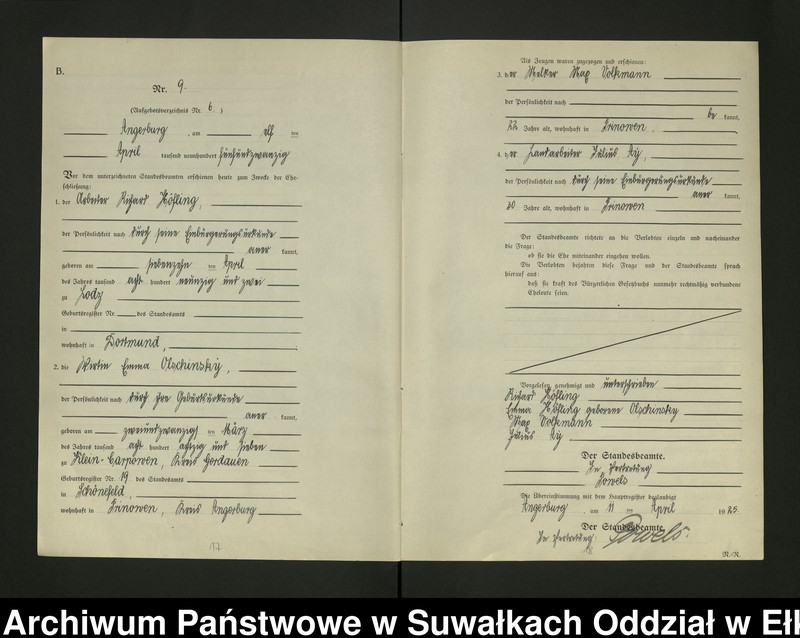 B.
Nr. 9.
(Aufgebotsverzeichnis Nr. 6.)
Angerburg, am elf ten
April tausend neunhundert fünfundzwanzig
Vor dem unterzeichneten Standesbeamten erschienen heute zum Zwecke der Ehe-
schließung:
1. der Arbeiter Richard Höfling,
der Persönlichkeit nach durch seine Einbürgerungsurkunde
aner kannt,
geboren am siebenzehn ten April
des Jahres tausend acht hundert neunzig und zwei
zu Lodz
Geburtsregister Nr. des Standesamts
in
wohnhaft in Dortmund,
2. die Wirtin Emma Olschinsky,
der Persönlichkeit nach durch ihre Geburtsurkunde
aner kannt,
geboren am zweiundzwanzigs ten März
des Jahres tausend acht hundert achtzig und sieben
zu Klein-, Kreis Gerdauen
Geburtsregister Nr. 19 des Standesamts
in Schönefeld,
wohnhaft in, Kreis Angerburg
17
Als Zeugen waren zugezogen und erschienen:
3. der Melker Max Volkmann
der Persönlichkeit nach
be kannt,
22 Jahre alt, wohnhaft in
4. der Landarbeiter Julius Ay,
der Persönlichkeit nach durch seine Einbürgerungsurkunde
aner kannt,
Jahre alt, wohnhaft in
Der Standesbeamte richtete an die Verlobten einzeln und nacheinander
die Frage:
ob sie die Ehe miteinander eingehen wollen.
Die Verlobten bejahten diese Frage und der Standesbeamte sprach
hierauf aus:
daß sie kraft des Bürgerlichen Gesetzbuchs nunmehr rechtmäßig verbundene
Eheleute seien.
Vorgelesen, genehmigt und unterschrieben
Richard Höfling
Emma Höfling geborene Olschinsky
Max Volkmann
Julius Ay
Der Standesbeamte.
In Vertretung
Powels
Die Übereinstimmung mit dem Hauptregister beglaubigt
Angerburg, am 11 ten April 1925.
Der Standesbeamte.
In Vertretung: Powels.
N.-R.
Archiwum Państwowe w Suwałkach Oddział w Ełk